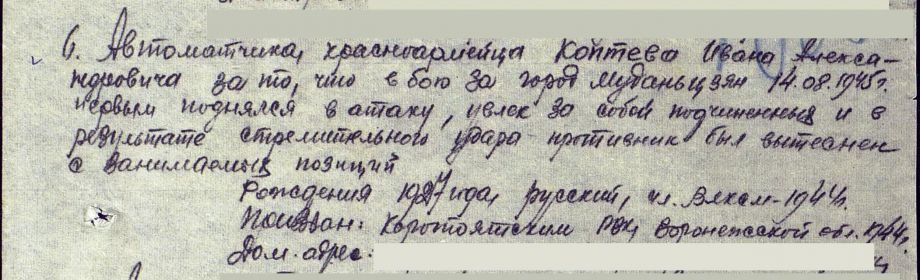 6. Автоматчика, красноармейца Коптева Ивана Алекса-
ндровича за то, что в бою за город Муданьцзян 14.08.1945г.
первым поднялся в атаку, увлек за собой подчиненных и в
результате стремительного удара противник был вытеснен
с занимаемых позиций
Рождения 1927 года, русский, чл. Влксм-1944г.
Призван: Коротоякским РВК, Воронежской обл. 1944г.
Дом. адрес: